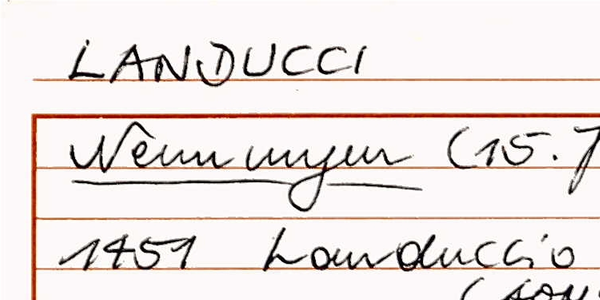 LANDUCCI
Nennungen (15. J
1451 Landuccio